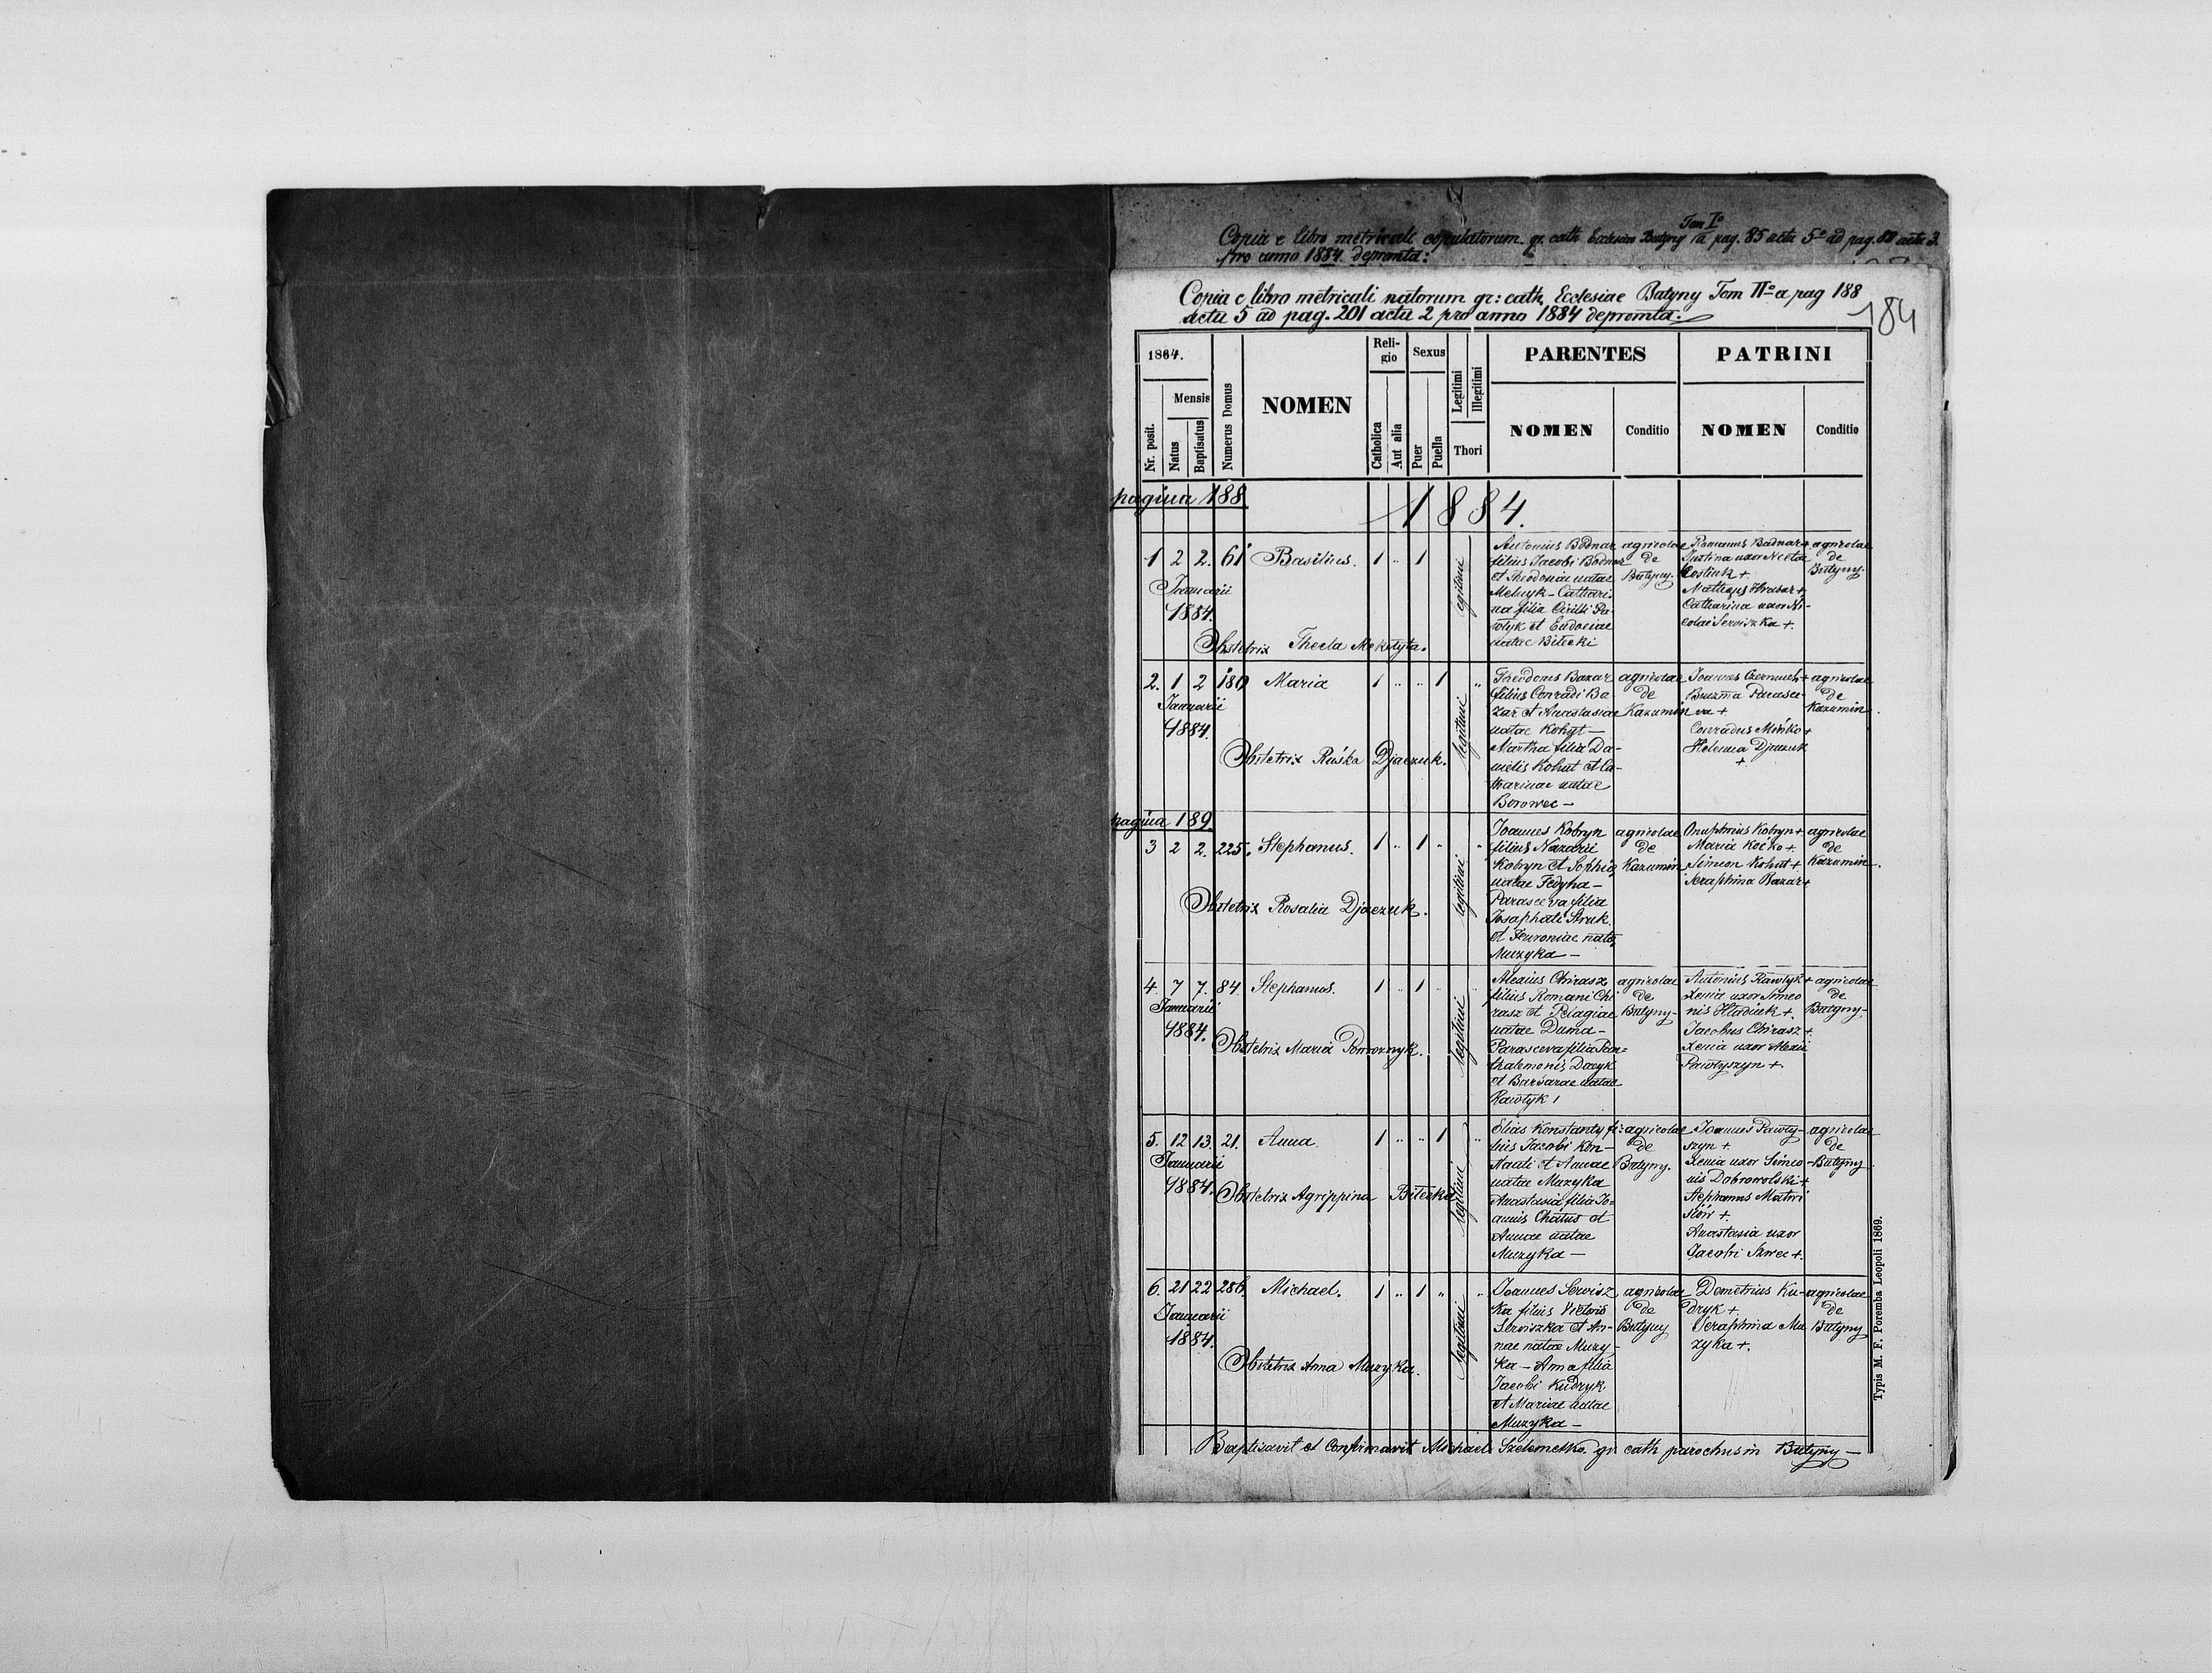 Tom I°
Copia e libro metricali copulatorum gr. cath Ecclesiae Butyny a pag. 85 actu 5° ad pag. actu 3.
pro anno 1884. depromta:
Copia e libro metricali natorum gr: cath. Ecclesiae Butyny Tom II° a pag 188
actu 5 ad pag. 201 actu 2 pro anno 1884 depromta.
184
1864.
Nr. posit.
Mensis
Natus
Baptisatus
Numerus Domus
NOMEN
Reli-
gio
Catholica
Aut alia
Sexus
Puer
Puella
Legitimi
Illegitimi
Thori
PARENTES
NOMEN
Conditio
PATRINI
NOMEN
Conditio
pagina 188
1884.
1 2 2. 61 Basilius. 1 .. 1
Januarii
1884.
Obstetrix Thecla Mekityta.
legitimi
Antonius Bodnar
filius Jacobi Bodnar
et Theodoniae natae
Melnyk - Cathari-
na filia Cirilli Pa-
wlyk et Eudociae
natae Bilecki
agricolae
de
Butyny.
Romanus Bodnar +
Justina uxor Nicetae
Kostiuk +
Matheus Hrabar +
Catharina uxor Ni-
colai Serwiszka +.
agricolae
de
Butyny.
2. 1 2 180 Maria 1 .. .. 1 ..
Januarii
1884.
Obstetrix Ruśka Djaczuk.
legitimi
Theodorus Bazar
filius Conradi Ba-
zar et Anastasiae
natae Kohut -
Martha filia Da-
nielis Kohut et Ca-
tharinae natae
Borowec -
agricolae
de
Kazumin
Joannes Czernuch +
Parasce-
va +
Conradus Mińko +
Helena Djaczuk
+
agricolae
de
Kazumin.
pagina 189.
3 2 2. 225. Stephanus. 1 .. 1 .. ..
Obstetrix Rosalia Djaczuk.
legitimi
Joannes Kobryn
filius Nazarii
Kobryn et Sophiae
natae Fedyna -
Parasceva filia
Josaphati Struk
et Feuroniae natae
Muzyka -
agricolae
de
Kazumin
Onuphrius Kobryn +
Maria Kocko +.
Simeon Kohut +
Seraphina Bazar +
agricolae
de
Kazumin.
4. 7 7. 84. Stephanus. 1 .. 1 ..
Januarii
1884.
Obstetrix Maria Powoznyk.
legitimi
Alexius Chirasz
filius Romani Chi
rasz et Pelagiae
natae Duma -
Parasceva filia Pan-
thalemonis Dacyk
et Barbarae natae
Pawlyk
agricolae
de
Butyny-
Antonius Pawlyk +
Xenia uxor Simeo
nis Hladiuk +.
Jacobus Chirasz +.
Xenia uxor Alexii
Pawlyszyn +.
agricolae
de
Butyny.
5. 12 13. 21. Anna. 1 .. .. 1 ..
Januarii
1884.
Obstetrix Agrippina Bilecka
legitimi
Elias Konstanty fi-
lius Jacobi Kon-
stanti et Annae
natae Muzyka
Anastasia filia Jo-
annis Chatus et
Annae natae
Muzyka -
agricolae
de
Butyny.
Joannes Pawly-
szyn +.
Xenia uxor Simeo-
nis Dobrowolski +
Stephanus Matwi
+.
Anastasia uxor
Jacobi Szwec +.
agricolae
de
Butyny
6. 21 22 286. Michael. 1 .. 1 .. ..
Januarii
1884.
Obstetrix Anna Muzyka.
legitimi
Joannes Serwisz
ka filius Victoris
Serwiszka et An-
nae natae Muzy-
ka - Anna filia
Jacobi Kudryk
et Mariae natae
Muzyka -
agricolae
de
Butyny
Demetrius Ku-
dryk +.
Seraphina Mu
zyka +.
agricolae
de
Butyny
Baptisavit et Confirmavit Michael Szelemetko gr. cath parochus in Butyny -
Typis M. F. Poremba Leopoli 1869.